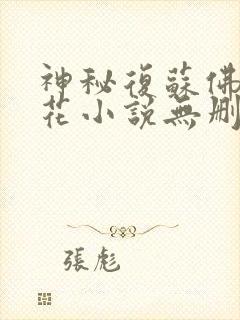 神秘復蘇佛
花小說無刪
張彪